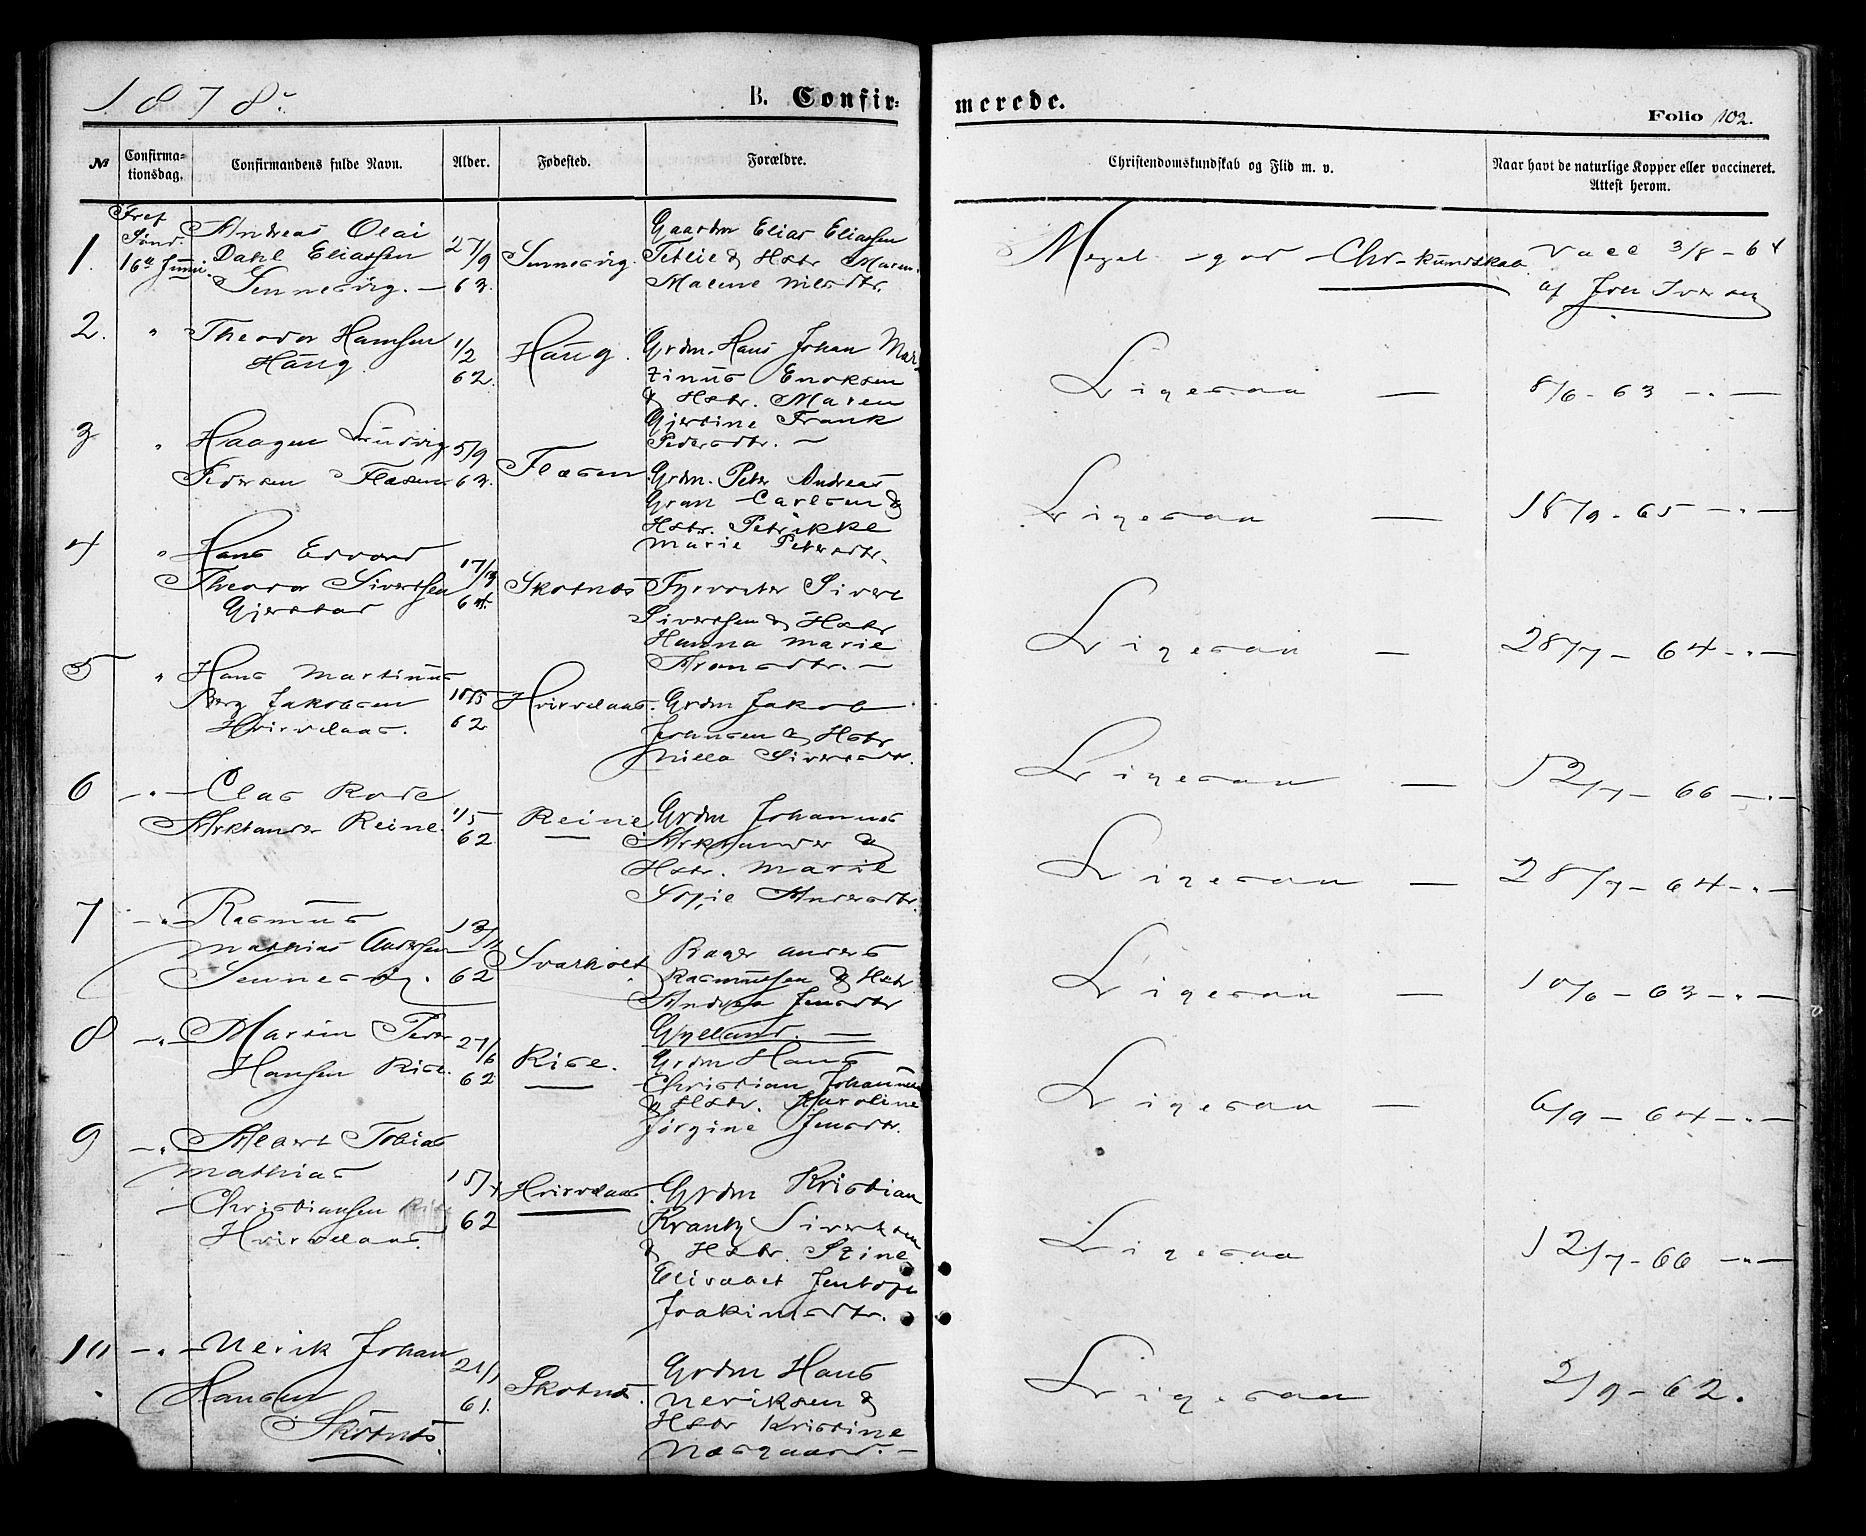 1878.
B. Confir=
merede.
Folio 102.
№
Confirma=
tionsdag.
Confirmandens fulde Navn.
Alder.
Fødested.
Forældre.
Christendomskundskab og Flid m. v.
Naar havt de naturlige Kopper eller vaccineret.
Attest herom.
1.
Sønd.
16de Juni.
Andreas Olai
Dahl Eliassen
Sennesvig. —
27/9
63.
Sennesvig.
Gaardm Elias Eliassen
& Hstr Maren
Malene Nilsdtr.
Meget god Chr-kundskab
Vacc 3/8 - 64
af Jon Iversen
2.
"
Theodor Hansen
Haug.
1/2
62.
Haug.
Grdm. Hans Johan Mar-
tinus Enoksen
& Hstr. Maren
Gjertine Frank
Pedersdtr. —
Ligesaa —
8/6 - 63 — " —
3
"
Haagen Ludvig
Pedersen Flæsen
5/9
63.
Flæsen
Grdm. Peter Andreas
Gran Carlsen &
Hstr. Petrikke
Marie Petersdtr.
Ligesaa —
18/9 - 65 — " —
4
"
Hans Edvard
Theodor Sivertsen
Gjerstad
17/3
64.
Skotnes
Fyrvogter Sivert
Sivertsen & Hstr
Hanna Marie
Aronsdtr. —
Ligesaa —
28/7 - 64 - " —
5
"
Hans Martinus
Berg Jakobsen
Hvirvelaas.
62
Hvirvelaas.
Grdm Jakob
Johnsen & Hstr
Nilla Sivertsdtr.
Ligesaa —
12/7 - 66 — " —
6
— " —
Clas Rode
Arktander Reine.
1/5
62
Reine
Grdm Johannes
Arktander &
Hstr. Marie
Sofie Andersdtr.
Ligesaa —
28/7 - 64 - " —
7
— " —
Rasmus
Mathias Andersen
Sennesvig.
13/11
62
Svarholt
Bager Anders
Rasmussen & Hstr
Andrea Jensdtr
Gylland. —
Ligesaa —
10/6 - 63 - " —
8
— " —
Martin Peder
Hansen Rise.
27/6
62
Rise.
Grdm Hans
Christian Johannes
& Hstr. Karoline
Jørgine Jensdtr.
Ligesaa —
6/9 - 64 — " —
9
— " —
Albert Tobias
Mathias
Christiansen
Hvirvelaas.
62
Hvirvelaas.
Grdm Kristian
Krantz Sivertsen
& Hstr. Stine
Elisabet Jentoft
Joakimsdtr.
Ligesaa
12/7 - 66 — " —
10
— " —
Nerik Johan
Hansen
Skotnes.
21/1
61.
Skotnes.
Grdm Hans
Neriksen &
Hstr Kristine
Næsgaard. —
Ligesaa
2/9 - 62.